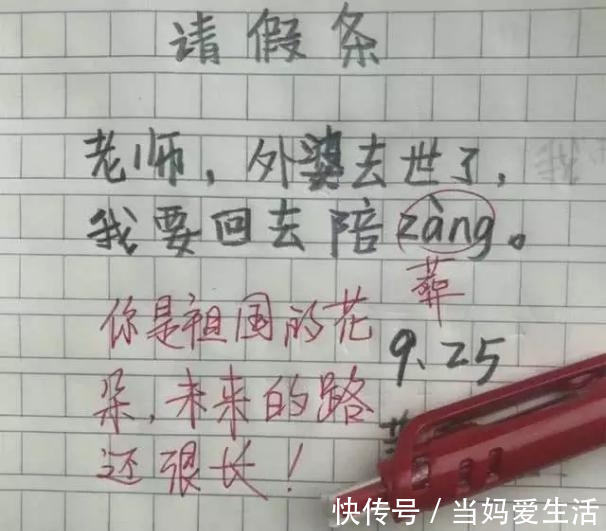 请假条
老师，外婆去世了，
我要回去陪zàng。
葬
你是祖国的花
9.25
朵，未来的路
还很长！
快传号/当妈爱生活